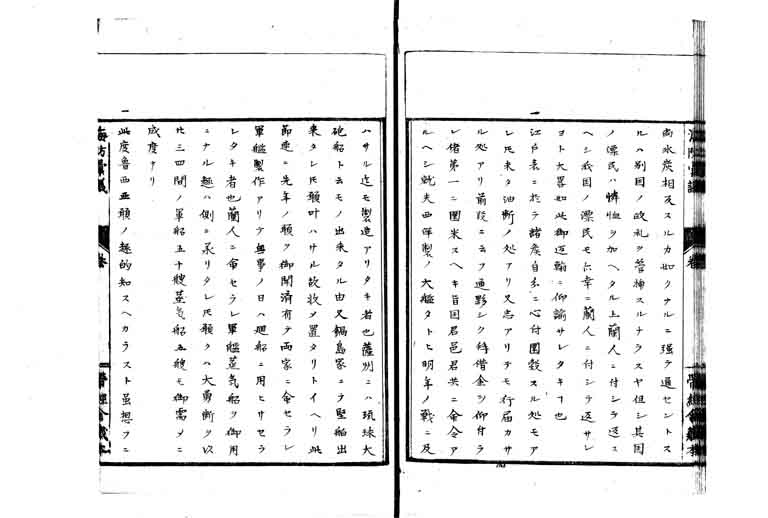 南氷炭相及スルカ如クナルニ強テ通セントス
ルハ別国ノ政礼ヲ管神スルナラスヤ但シ其国
ノ漂民ハ憐恤ヲ加ヘタル上蘭人ニ付シテ返ス
ヘシ我国ノ漂民モ六幸ニ蘭人ニ付シテ返サレ
ヨト大略如此御返翰ニ仰諭サレタキ也
江戸表ニ於テ諸矦自分ニ心付囲穀スル処モア
レ𪜈未タ油断ノ処アリ又志アリテモ行届カサ
ル処アリ前段ニ云フ通夥シク拝借金ヲ仰付ラ
レ偖第一ニ囲米スヘキ旨国君邑君共ニ命令ア
ルヘシ就夫西洋製ノ大艦タトヒ明年ノ戦ニ及
ハサル迠モ製造アリタキ者也薩州ニハ琉球大
砲船ト云モノ出来タル由又鍋島家ニテ堅船出
来タレ𪜈願叶ハサル故牧メ置タリトイヘリ此
節速ニ先年ノ願ヲ御聞済有テ両家ニ命セラレ
軍艦製作アリテ無事ノ日ハ廻船ニ用ヒサセラ
レタキ者也蘭人ニ命セラレ軍艦蒸気船ヲ御用
ニナル趣ハ側ニ承リタレ𪜈願クハ大勇断ヲ以
比三四間ノ軍船五十艘蒸気船五艘モ御需メニ
成度ナリ
此度魯西亜願ノ趣的知スヘカラスト雖想フニ
海防彙議
巻